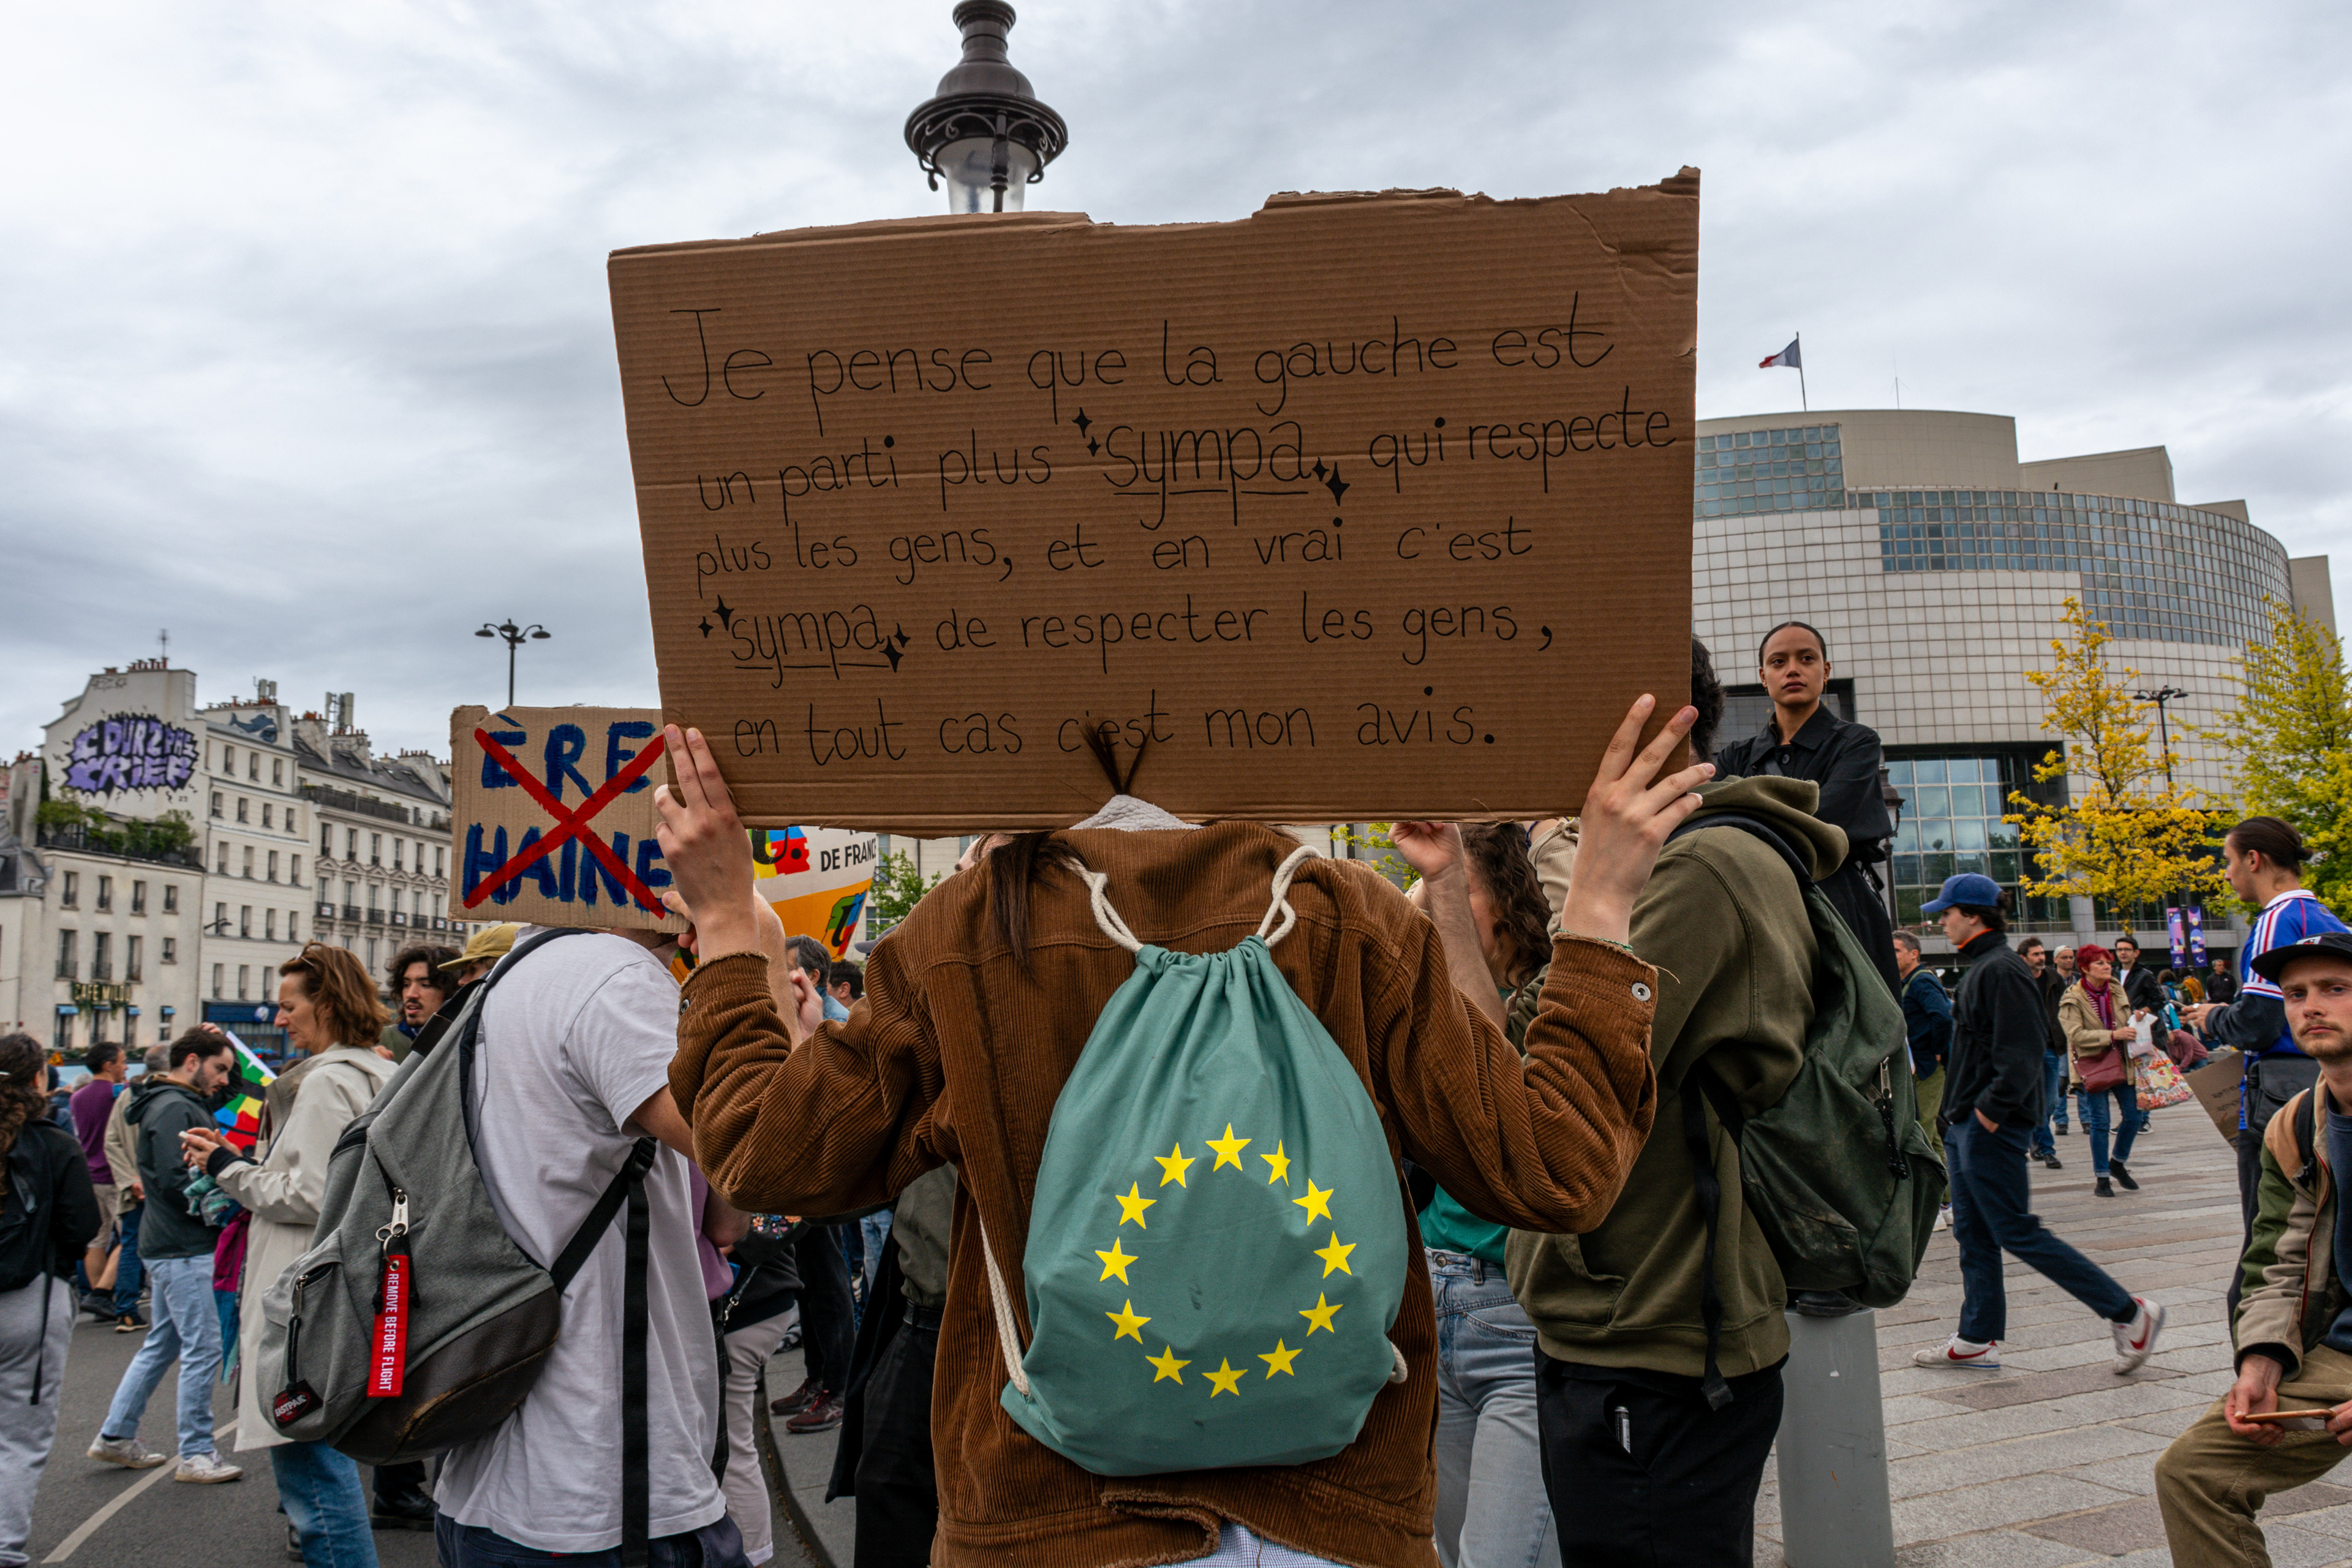 Je pense que la gauche est
un parti plus sympa qui respecte
plus les gens, et en vrai c'est
sympa de respecter les gens,
en tout cas c'est mon avis.
ÈRE
HAINE
DE FRANCE
REMOVE BEFORE FLIGHT
EASTPAK